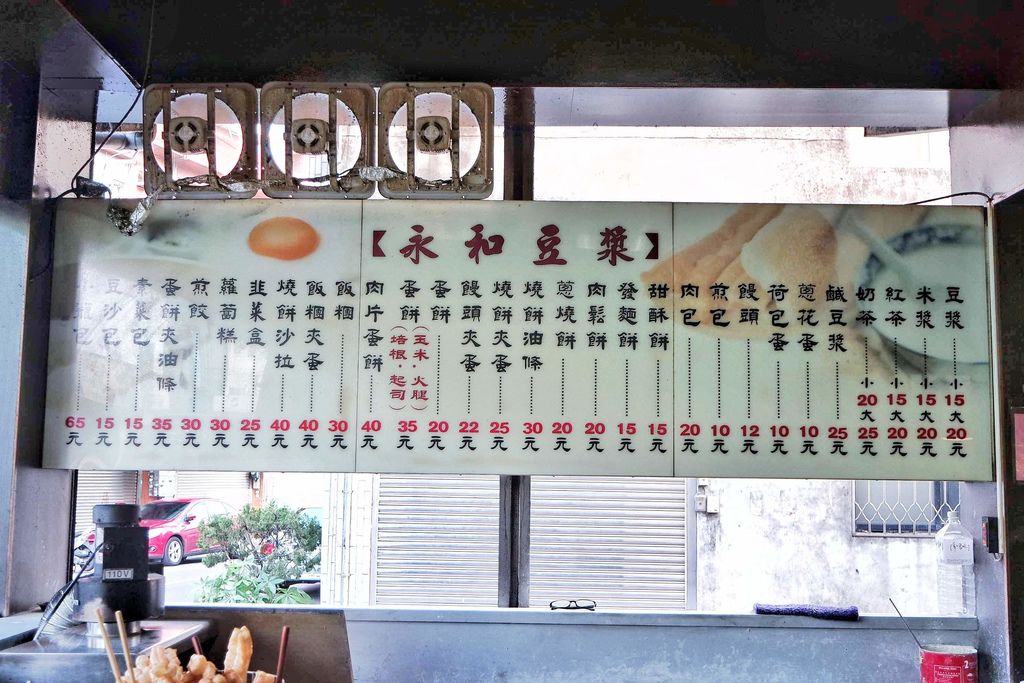 【永和豆漿】
豆漿 小15 大20元
米漿 小15 大20元
紅茶 小15 大20元
奶茶 小20 大25元
鹹豆漿 25元
蔥花蛋 10元
荷包蛋 10元
饅頭 12元
煎包 10元
肉包 20元
甜酥餅 15元
發麵餅 15元
肉鬆餅 20元
蔥燒餅 20元
燒餅油條 30元
燒餅夾蛋 25元
饅頭夾蛋 22元
蛋餅 20元
蛋餅（玉米・火腿）（培根・起司） 35元
肉片蛋餅 40元
飯糰 30元
飯糰夾蛋 40元
燒餅沙拉 40元
韭菜盒 25元
蘿蔔糕 30元
煎餃 30元
蛋餅夾油條 35元
素菜包 15元
豆沙包 15元
包 65元
110V